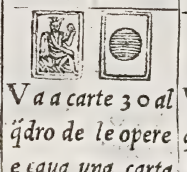 V a a carte 30 al
q̃dro de le opere
e caua una carta